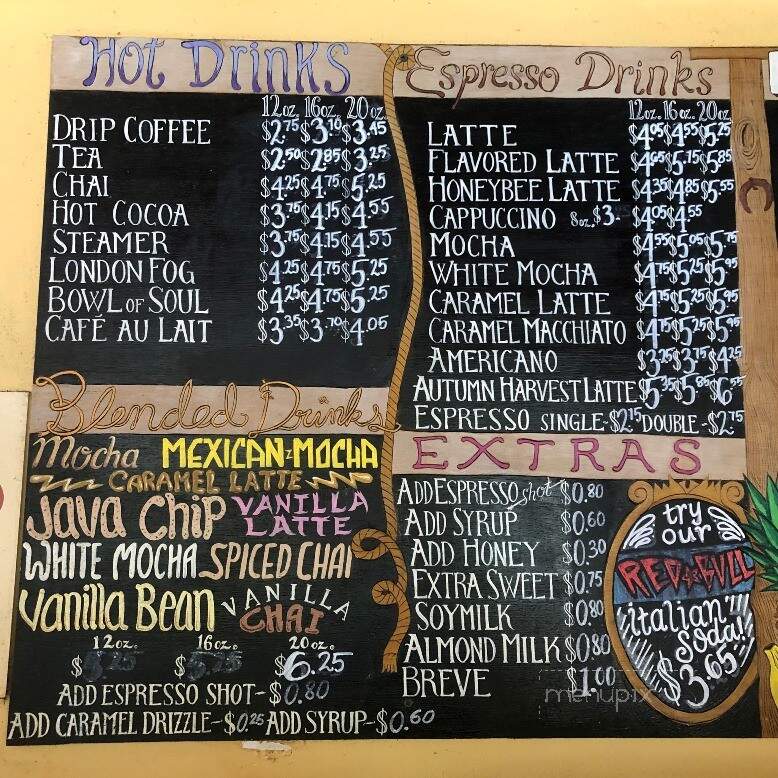 Hot Drinks
12oz. 16oz. 20oz.
DRIP COFFEE $2.75 $3.10 $3.45
TEA $2.50 $2.85 $3.25
CHAI $4.25 $4.75 $5.25
HOT COCOA $3.75 $4.15 $4.55
STEAMER $3.75 $4.15 $4.55
LONDON FOG $4.25 $4.75 $5.25
BOWL OF SOUL $4.25 $4.75 $5.25
CAFÉ AU LAIT $3.35 $3.70 $4.05
Blended Drinks
Mocha MEXICAN MOCHA
CARAMEL LATTE
Java Chip VANILLA LATTE
WHITE MOCHA SPICED CHAI
Vanilla Bean VANILLA CHAI
12oz. 16oz. 20oz.
$5.25 $ $6.25
ADD ESPRESSO SHOT-$0.80
ADD CARAMEL DRIZZLE-$0.25 ADD SYRUP-$0.60
Espresso Drinks
12oz. 16oz. 20oz.
LATTE $4.05 $4.55 $5.25
FLAVORED LATTE $4.65 $5.15 $5.85
HONEYBEE LATTE $4.35 $4.85 $5.55
CAPPUCCINO 8oz. $3.- $4.05 $4.55
MOCHA $4.55 $5.05 $5.75
WHITE MOCHA $4.75 $5.25 $5.95
CARAMEL LATTE $4.75 $5.25 $5.95
CARAMEL MACCHIATO $4.75 $5.25 $5.95
AMERICANO $3.25 $3.75 $4.25
AUTUMN HARVEST LATTE $5.35 $5.85 $6.55
ESPRESSO SINGLE-$2.15 DOUBLE-$2.75
EXTRAS
ADD ESPRESSO shot $0.80
ADD SYRUP $0.60
ADD HONEY $0.30
EXTRA SWEET $0.75
SOYMILK $0.80
ALMOND MILK $0.80
BREVE $1.00
try
our
RED BULL
italian
soda!
$3.65
menupix